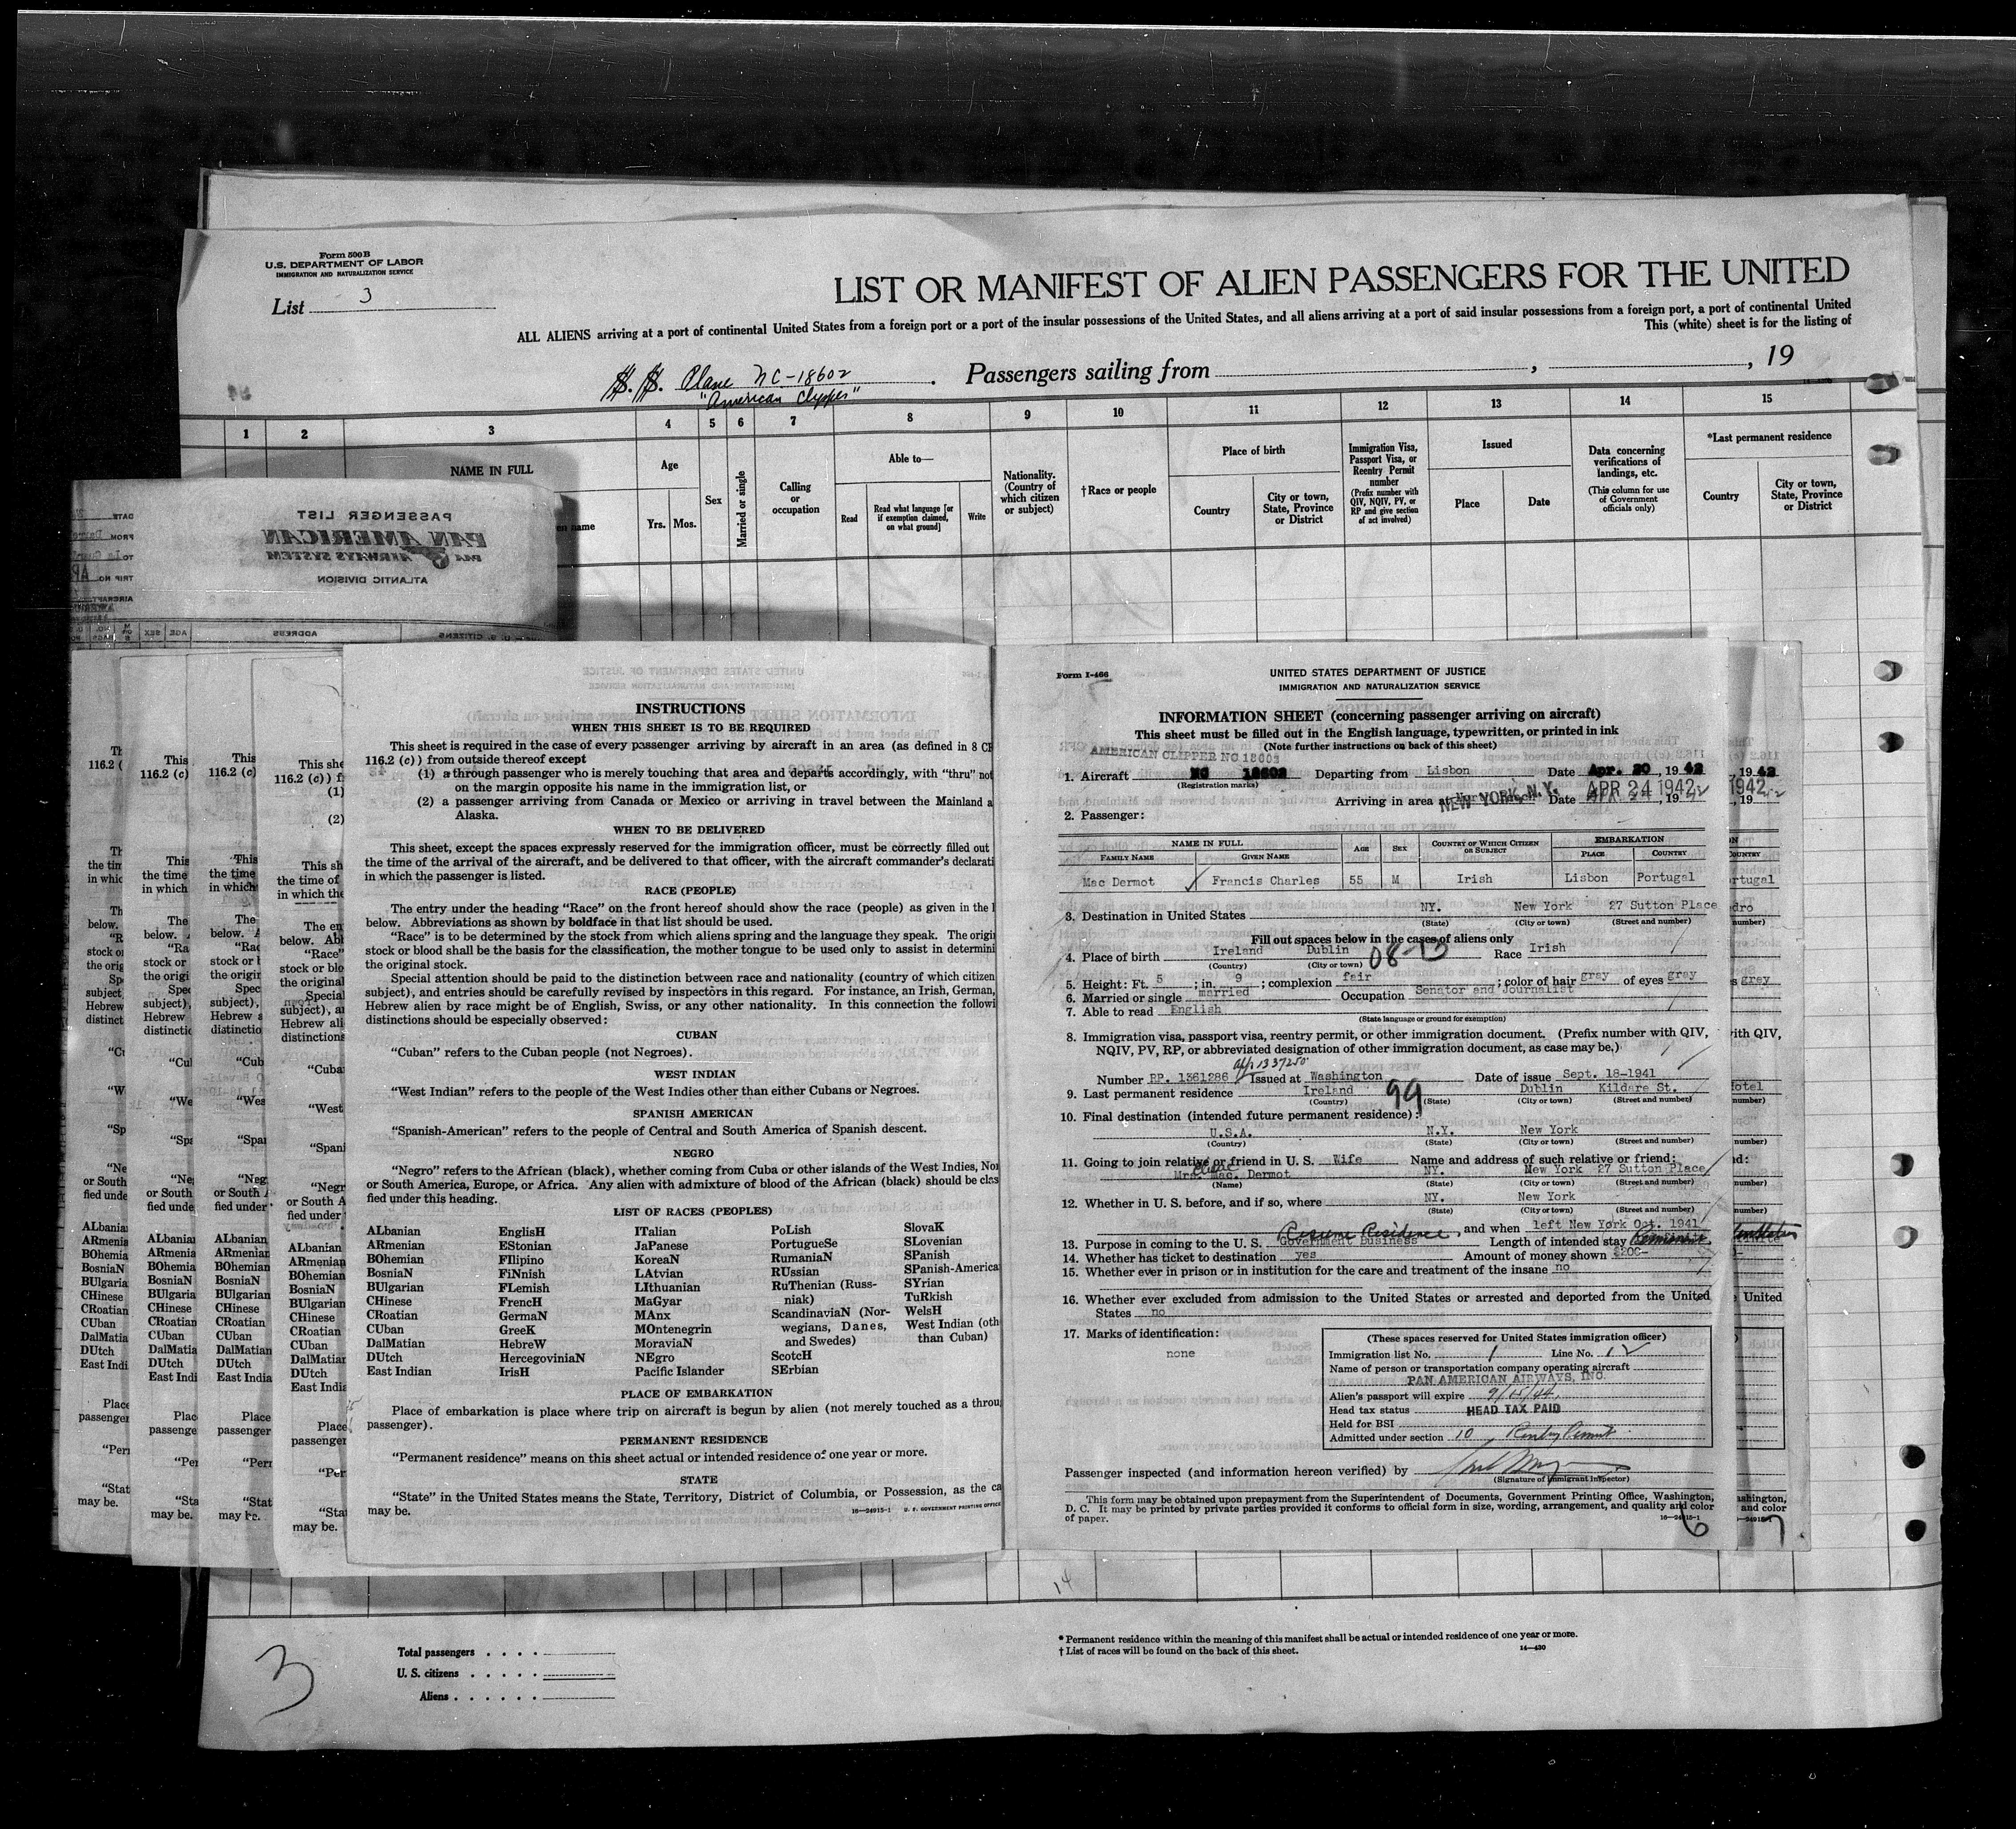 Form 500B
U.S. DEPARTMENT OF LABOR
IMMIGRATION AND NATURALIZATION SERVICE
List 3
LIST OR MANIFEST OF ALIEN PASSENGERS FOR THE UNITED
ALL ALIENS arriving at a port of continental United States from a foreign port or a port of the insular possessions of the United States, and all aliens arriving at a port of said insular possessions from a foreign port, a port of continental United
This (white) sheet is for the listing of
S. S. Plane NC-18602
"American Clipper"
Passengers sailing from , , 19
1 2 3 4 5 6 7 8 9 10 11 12 13 14 15
NAME IN FULL
Age
Yrs. Mos.
Sex
Married or single
Calling or occupation
Able to—
Read
Read what language [or if exemption claimed, on what ground]
Write
Nationality. (Country of which citizen or subject)
†Race or people
Place of birth
Country
City or town, State, Province or District
Immigration Visa, Passport Visa, or Reentry Permit number
(Prefix number with QIV, NQIV, PV, or RP and give section of act involved)
Issued
Place
Date
Data concerning verifications of landings, etc.
(This column for use of Government officials only)
*Last permanent residence
Country
City or town, State, Province or District
PASSENGER LIST
PAN AMERICAN
PAN AMERICAN AIRWAYS SYSTEM
ATLANTIC DIVISION
INSTRUCTIONS
WHEN THIS SHEET IS TO BE REQUIRED
This sheet is required in the case of every passenger arriving by aircraft in an area (as defined in 8 CF
116.2 (c)) from outside thereof except
(1) a through passenger who is merely touching that area and departs accordingly, with "thru" not
on the margin opposite his name in the immigration list, or
(2) a passenger arriving from Canada or Mexico or arriving in travel between the Mainland a
Alaska.
WHEN TO BE DELIVERED
This sheet, except the spaces expressly reserved for the immigration officer, must be correctly filled out
the time of the arrival of the aircraft, and be delivered to that officer, with the aircraft commander's declarati
in which the passenger is listed.
RACE (PEOPLE)
The entry under the heading "Race" on the front hereof should show the race (people) as given in the l
below. Abbreviations as shown by boldface in that list should be used.
"Race" is to be determined by the stock from which aliens spring and the language they speak. The origi
stock or blood shall be the basis for the classification, the mother tongue to be used only to assist in determini
the original stock.
Special attention should be paid to the distinction between race and nationality (country of which citizen
subject), and entries should be carefully revised by inspectors in this regard. For instance, an Irish, German,
Hebrew alien by race might be of English, Swiss, or any other nationality. In this connection the followi
distinctions should be especially observed:
CUBAN
"Cuban" refers to the Cuban people (not Negroes).
WEST INDIAN
"West Indian" refers to the people of the West Indies other than either Cubans or Negroes.
SPANISH AMERICAN
"Spanish-American" refers to the people of Central and South America of Spanish descent.
NEGRO
"Negro" refers to the African (black), whether coming from Cuba or other islands of the West Indies, Nor
or South America, Europe, or Africa. Any alien with admixture of blood of the African (black) should be clas
fied under this heading.
LIST OF RACES (PEOPLES)
ALbanian EnglisH ITalian PoLish SlovaK
ARmenian EStonian JaPanese PortugueSe SLovenian
BOhemian FIlipino KoreaN RumaniaN SPanish
BosniaN FiNnish LAtvian RUssian SPanish-America
BUlgarian FLemish LIthuanian RuThenian (Russ- SYrian
CHinese FrencH MaGyar niak) TuRkish
CRoatian GermaN MAnx ScandinaviaN (Nor- WelsH
CUban GreeK MOntenegrin wegians, Danes, West Indian (oth
DalMatian HebreW MoraviaN and Swedes) than Cuban)
DUtch HercegoviniaN NEgro ScotcH
East Indian IrisH Pacific Islander SErbian
PLACE OF EMBARKATION
Place of embarkation is place where trip on aircraft is begun by alien (not merely touched as a throu
passenger).
PERMANENT RESIDENCE
"Permanent residence" means on this sheet actual or intended residence of one year or more.
STATE
"State" in the United States means the State, Territory, District of Columbia, or Possession, as the ca
may be.
16—24915-1 U. S. GOVERNMENT PRINTING OFFICE
Form I-466
UNITED STATES DEPARTMENT OF JUSTICE
IMMIGRATION AND NATURALIZATION SERVICE
INFORMATION SHEET (concerning passenger arriving on aircraft)
This sheet must be filled out in the English language, typewritten, or printed in ink
(Note further instructions on back of this sheet)
AMERICAN CLIPPER NC 18602
1. Aircraft NC 18602 Departing from Lisbon Date Apr. 20, 1942
(Registration marks)
Arriving in area at NEW YORK, N.Y. Date APR 24 1942, 19
2. Passenger:
NAME IN FULL AGE SEX COUNTRY OF WHICH CITIZEN OR SUBJECT EMBARKATION
FAMILY NAME GIVEN NAME PLACE COUNTRY
Mac Dermot Francis Charles 55 M Irish Lisbon Portugal
3. Destination in United States NY. New York 27 Sutton Place
(State) (City or town) (Street and number)
Fill out spaces below in the cases of aliens only
4. Place of birth Ireland Dublin 08-13 Race Irish
(Country) (City or town)
5. Height: Ft. 5; in. 9; complexion fair; color of hair gray of eyes grey
6. Married or single married Occupation Senator and Journalist
7. Able to read English
(State language or ground for exemption)
8. Immigration visa, passport visa, reentry permit, or other immigration document. (Prefix number with QIV,
NQIV, PV, RP, or abbreviated designation of other immigration document, as case may be.)
1337250
Number RP. 1361286 Issued at Washington Date of issue Sept. 18-1941
9. Last permanent residence Ireland 99 Dublin Kildare St.
(Country) (State) (City or town) (Street and number)
10. Final destination (intended future permanent residence):
U.S.A. N.Y. New York
(Country) (State) (City or town) (Street and number)
11. Going to join relative or friend in U. S. Wife Name and address of such relative or friend:
Mrs. Mac. Dermot NY. New York 27 Sutton Place
(Name) (State) (City or town) (Street and number)
12. Whether in U.S. before, and if so, where NY. New York
(State) (City or town) (Street and number)
Resume Residence, and when left New York Oct. 1941
13. Purpose in coming to the U. S. Government Business Length of intended stay Permanent
14. Whether has ticket to destination yes Amount of money shown
15. Whether ever in prison or in institution for the care and treatment of the insane no
16. Whether ever excluded from admission to the United States or arrested and deported from the United
States no
17. Marks of identification:
none
(These spaces reserved for United States immigration officer)
Immigration list No. 1 Line No. 12
Name of person or transportation company operating aircraft
PAN AMERICAN AIRWAYS, INC.
Alien's passport will expire 9/15/44
Head tax status HEAD TAX PAID
Held for BSI
Admitted under section 10 Reentry Permit
Passenger inspected (and information hereon verified) by
(Signature of Immigrant Inspector)
This form may be obtained upon prepayment from the Superintendent of Documents, Government Printing Office, Washington,
D. C. It may be printed by private parties provided it conforms to official form in size, wording, arrangement, and quality and color
of paper.
16—24915-1
6
7
14
3
Total passengers
U. S. citizens
Aliens
* Permanent residence within the meaning of this manifest shall be actual or intended residence of one year or more.
† List of races will be found on the back of this sheet.
14—430